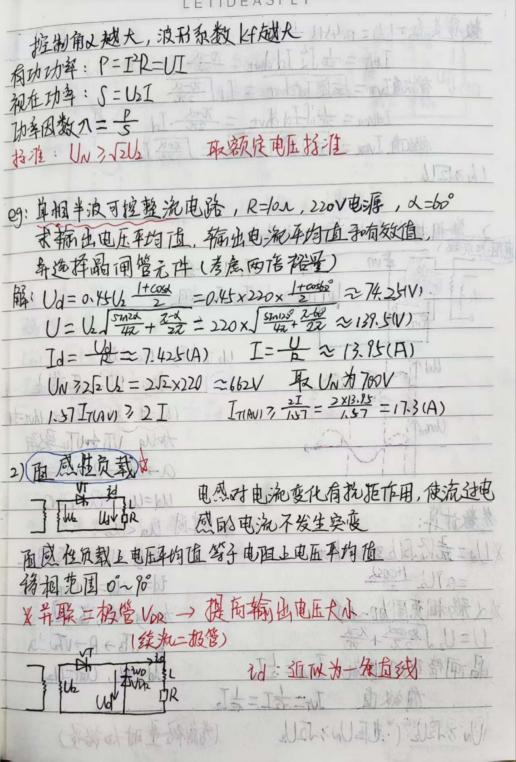 LETIDEASFLY
控制角α越大，波形系数kf越大
有功功率：P=I²R=UI
视在功率：S=U₂I
功率因数λ=P/S
标准：U_N≥√2U₂ 取额定电压标准
eg：单相半波可控整流电路，R=10Ω，220V电源，α=60°
求输出电压平均值，输出电流平均值和有效值，
并选择晶闸管元件（考虑两倍裕量）
解：Ud=0.45U₂ (1+cosα)/2 =0.45×220×(1+cos60°)/2 ≈74.25(V)
U=U₂√(sin2α/4π + (π-α)/2π) =220×√(sin120°/4π + (π-60°)/2π) ≈139.5(V)
Id=Ud/R≈7.425(A) I=U/R≈13.95(A)
U_N≥2√2U₂=2√2×220≈662V 取U_N为700V
1.57I_T(AV)≥2I I_T(AV)≥2I/1.57=2×13.95/1.57=17.3(A)
2）阻感性负载
VT id
U₂ Ud L R
电感对电流变化有抗拒作用，使流过电
感的电流不发生突变
阻感性负载上电压平均值等于电阻上电压平均值
移相范围0°~90°
※并联二极管V_DR→提高输出电压大小
（续流二极管）
VT id
U₂ Ud VDR L R
id：近似为一条直线